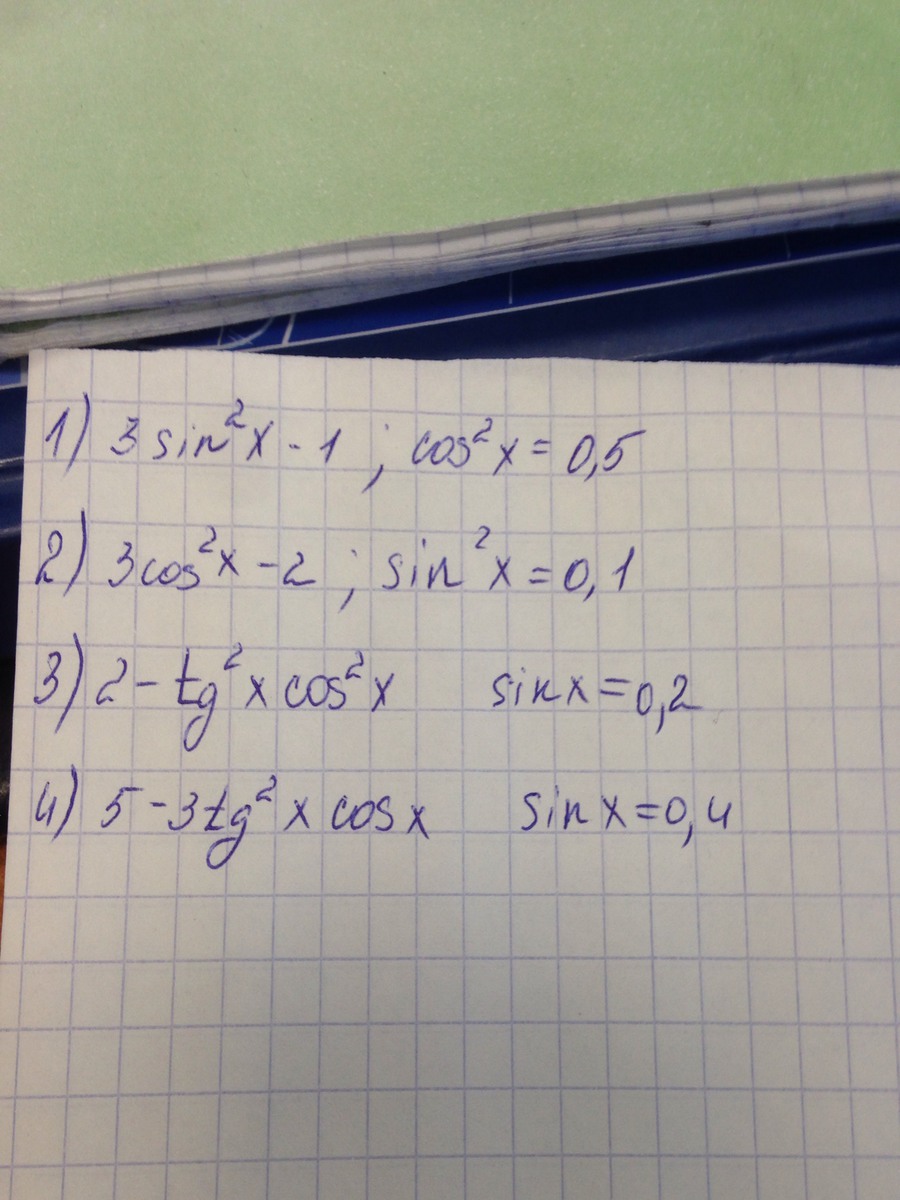 1) 3 sin²x - 1 ; cos²x = 0,5
2) 3cos²x - 2 ; sin²x = 0,1
3) 2 - tg²x cos²x sinx = 0,2
4) 5 - 3tg²x cosx sinx = 0,4